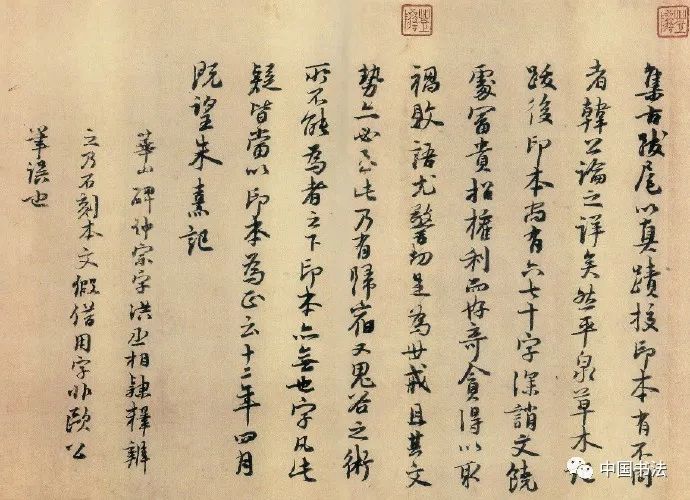 集古跋尾以真蹟校印本有不同
者韓公論之詳矣然平泉草木記
跋後印本尚有六七十字深誚文饒
處富貴招權利而好奇貪得以取
禍敗語尤警切足為世戒且其文
勢亦必至此乃有歸宿又鬼谷之術
所不能為者之下印本亦無也字凡此
疑皆當以印本為正云十二年四月
既望朱熹記
華山碑仲宗字洪丞相隸釋辨
之乃石刻本文假借用字非歐公
筆誤也
中国书法